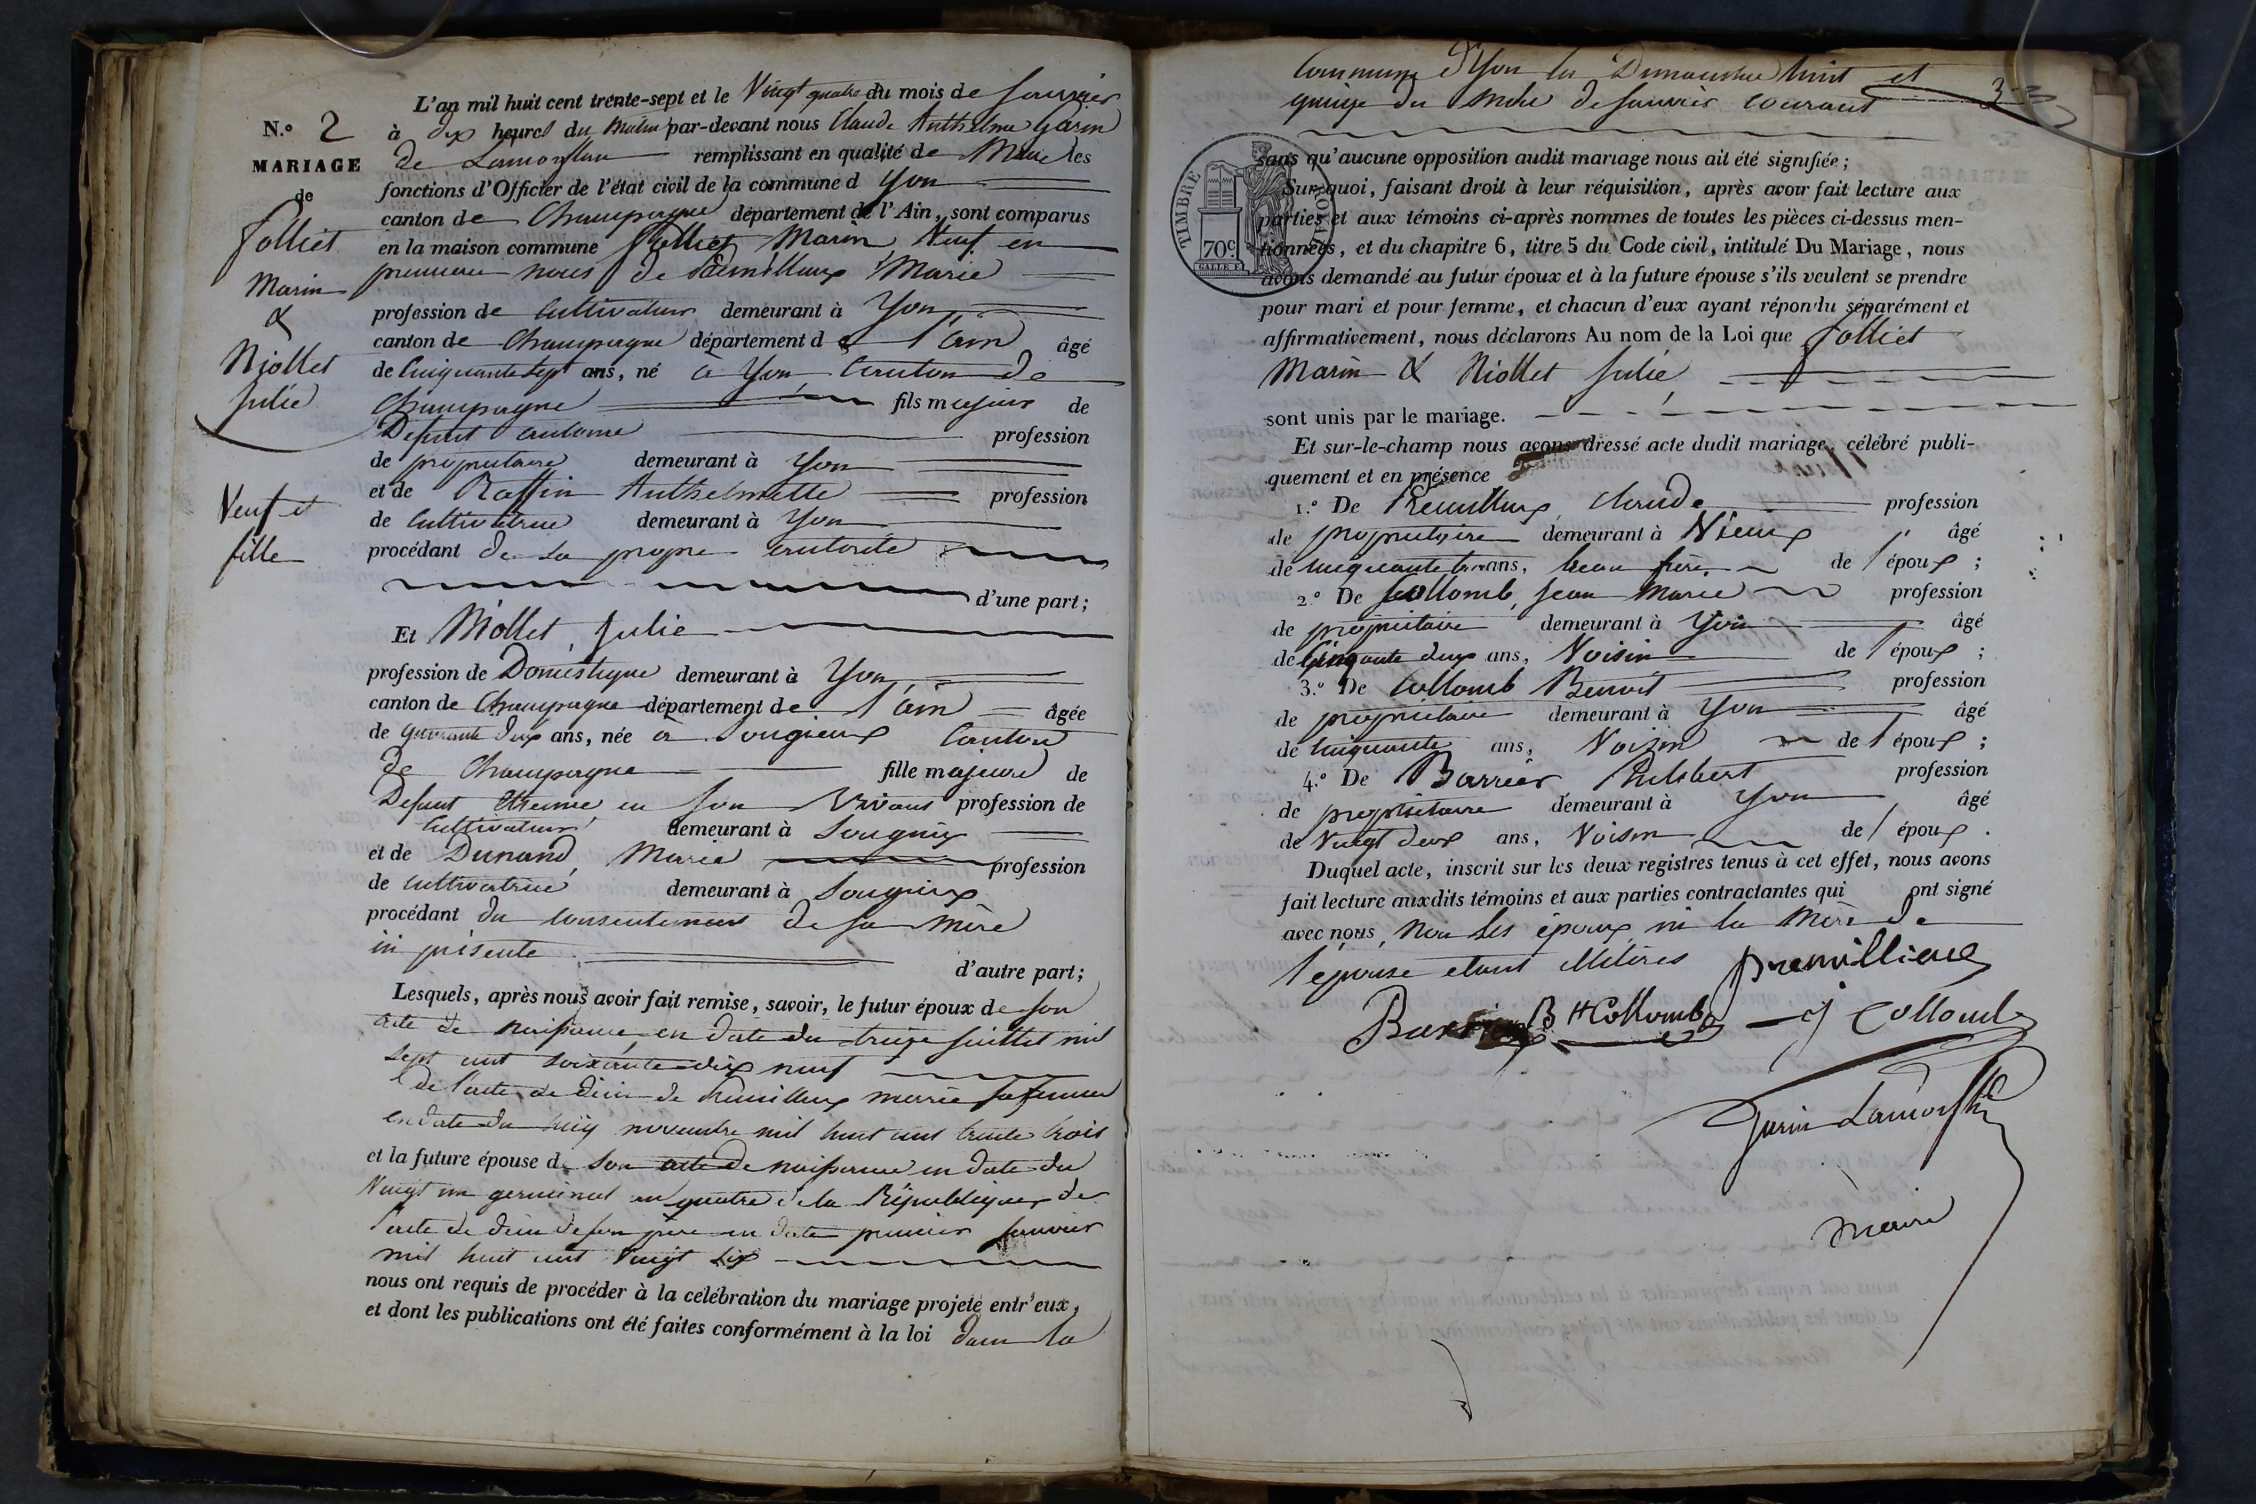 L'an mil huit cent trente-sept et le Vingt quatre du mois de Janvier
N.o 2
à dix heures du matin par-devant nous Claude Anthelme Garin
MARIAGE
de Lamorflan remplissant en qualité de Maire les
de
fonctions d'Officier de l'état civil de la commune d Yon
canton de Champagne département de l'Ain, sont comparus
Jolliet
en la maison commune Jolliet Marin Veuf en
Marin
premiere noces de Marie
&
profession de Cultivateur demeurant à Yon
Niollet
canton de Champagne département de l'ain âgé
Julie
de Cinquante sept ans, né à Yon, Canton de
Champagne fils majeur de
Défunt antoine profession
de propriétaire demeurant à Yon
Veuf et
et de Raffin Anthelmette profession
fille
de Cultivatrice demeurant à Yon
procédant de sa propre autorité
d'une part;
Et Niollet, Julie
profession de Domestique demeurant à Yon
canton de Champagne département de l'ain âgée
de quarante deux ans, née à Songieux Canton
de Champagne fille majeure de
Defunt Etienne en son Vivant profession de
Cultivateur demeurant à
et de Dunand, Marie profession
de Cultivatrice demeurant à Songieux
procédant du consentement de sa mère
ici présente
d'autre part;
Lesquels, après nous avoir fait remise, savoir, le futur époux de son
acte de naissance, en date du treize Juillet mil
sept cent soixante dix neuf
de l'acte de décès de marie sa femme
en date du novembre mil huit cent trente trois
et la future épouse de son acte de naissance en date du
Vingt un germinal an quatre de la République, de
l'acte de décès de son père en date premier Janvier
mil huit cent Vingt six
nous ont requis de procéder à la célébration du mariage projeté entr'eux,
et dont les publications ont été faites conformément à la loi dans la
commune d'Yon les Dimanches huit et
3
quinze du mois de Janvier courant
TIMBRE ROYAL
70c
sans qu'aucune opposition audit mariage nous ait été signifiée;
Sur quoi, faisant droit à leur réquisition, après avoir fait lecture aux
parties et aux témoins ci-après nommes de toutes les pièces ci-dessus men-
tionnées, et du chapitre 6, titre 5 du Code civil, intitulé Du Mariage, nous
avons demandé au futur époux et à la future épouse s'ils veulent se prendre
pour mari et pour femme, et chacun d'eux ayant répondu séparément et
affirmativement, nous déclarons Au nom de la Loi que Jolliet
Marin & Niollet Julie
sont unis par le mariage.
Et sur-le-champ nous avons dressé acte dudit mariage, célébré publi-
quement et en présence
1.o De Claude profession
de propriétaire demeurant à Vieux âgé
de cinquante trois ans, beau frère de l'époux;
2.o De Collomb, Jean Marie profession
de propriétaire demeurant à Yon âgé
de Cinquante deux ans, Voisin de l'époux;
3.o De Collomb Benoit profession
de propriétaire demeurant à Yon âgé
de cinquante ans, Voisin de l'époux;
4.o De Barrier Philibert profession
de propriétaire demeurant à Yon âgé
de Vingt deux ans, Voisin de l'époux.
Duquel acte, inscrit sur les deux registres tenus à cet effet, nous avons
fait lecture auxdits témoins et aux parties contractantes qui ont signé
avec nous, Non les époux, ni la Mère de
l'épouse étant illitérés premillieux
Barrier Bt Collomb J Collomb
Garin Lamorflan
Maire